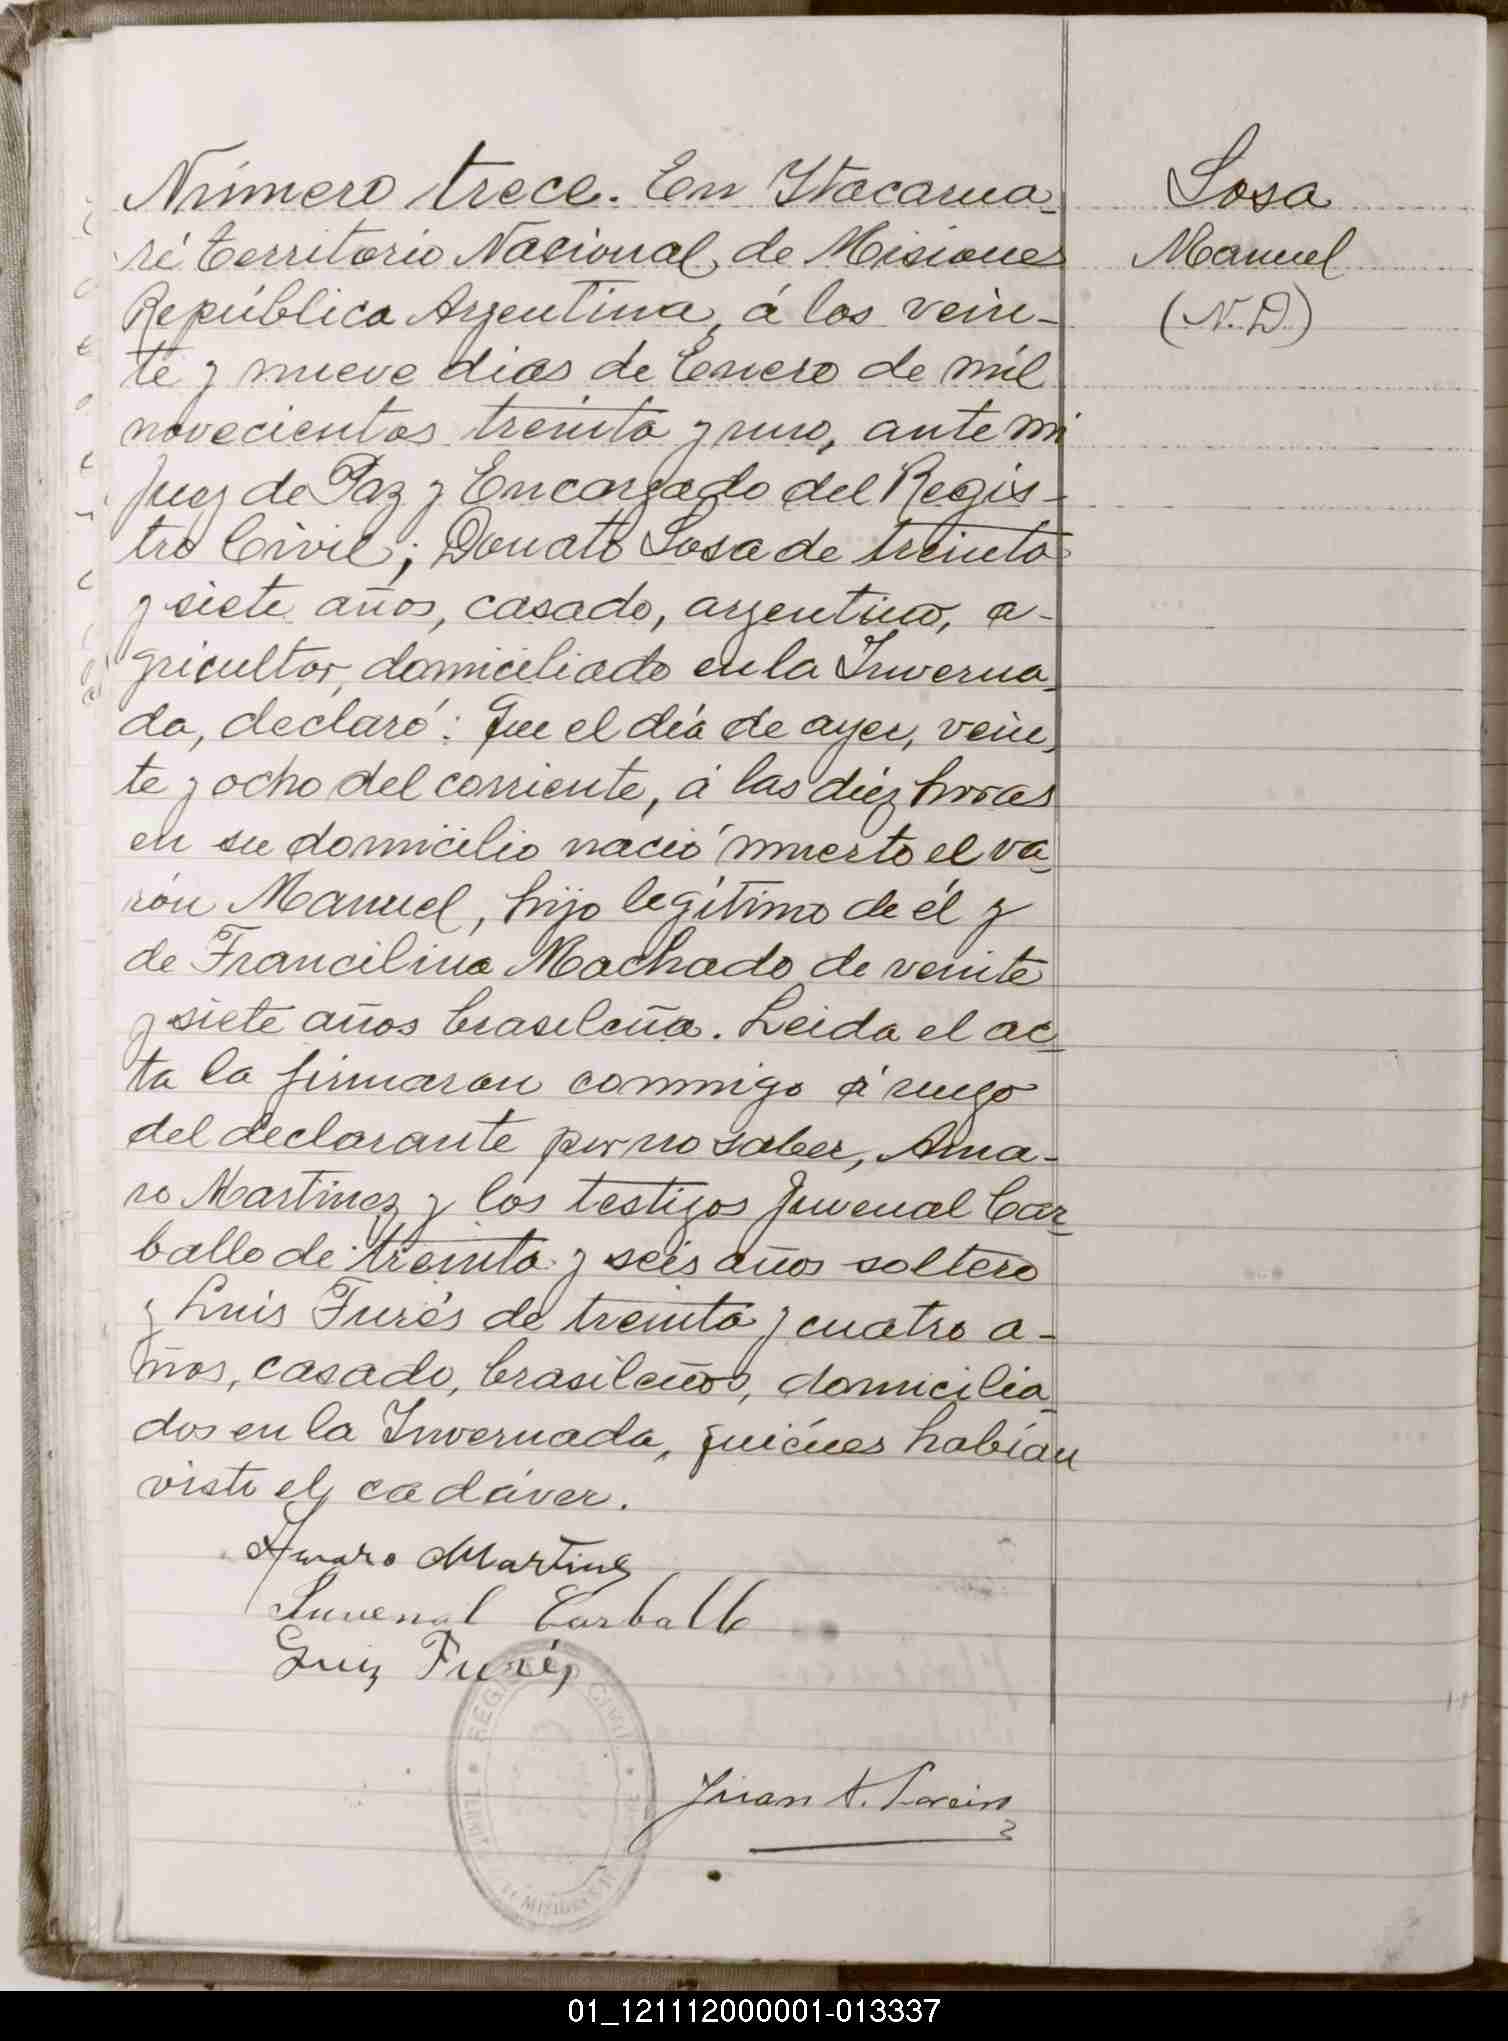 Número trece. En Itacarua-
ré territorio Nacional de Misiones
República Argentina, á los vein-
te y nueve dias de Enero de mil
novecientos treinta y uno, ante mi
Juez de Paz y Encargado del Regis-
tro Civil; Donato Sosa de treinta
y siete años, casado, argentino, a-
gricultor, domiciliado en la Inverna-
da, declaró: Que el día de ayer, vein-
te y ocho del corriente, á las diez horas
en su domicilio nació muerto el va-
rón Manuel, hijo legítimo de él y
de Francilina Machado de veinte
y siete años brasileña. Leida el ac-
ta la firmaron conmigo á ruego
del declarante por no saber, Ama-
ro Martinez y los testigos Juvenal Car-
ballo de treinta y seis años soltero
y Luis Furés de treinta y cuatro a-
ños, casado, brasileños, domicilia-
dos en la Invernada, quiénes habían
visto el cadáver.
Amaro Martinez
Juvenal Carballo
Luiz Furés
Juan A.
Sosa
Manuel
(N.D.)
REGISTRO CIVIL
MISIONES
01_121112000001-013337